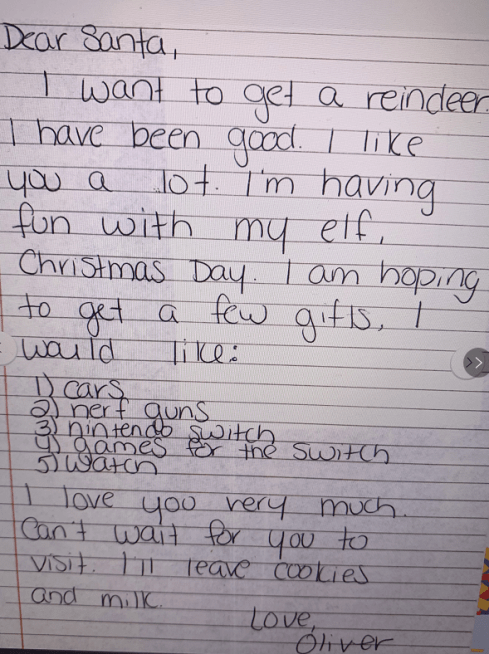 Dear Santa,
I want to get a reindeer.
I have been good. I like
you a lot. I'm having
fun with my elf,
Christmas Day. I am hoping
to get a few gifts, I
would like:
1) cars
2) nerf guns
3) nintendo switch
4) games for the switch
5) watch
I love you very much.
Can't wait for you to
visit. I'll leave cookies
and milk.
Love,
Oliver